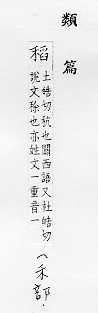 類篇
稻
土皓切秔也關西語又杜皓切
說文稌也亦姓文一重音一
(禾部)